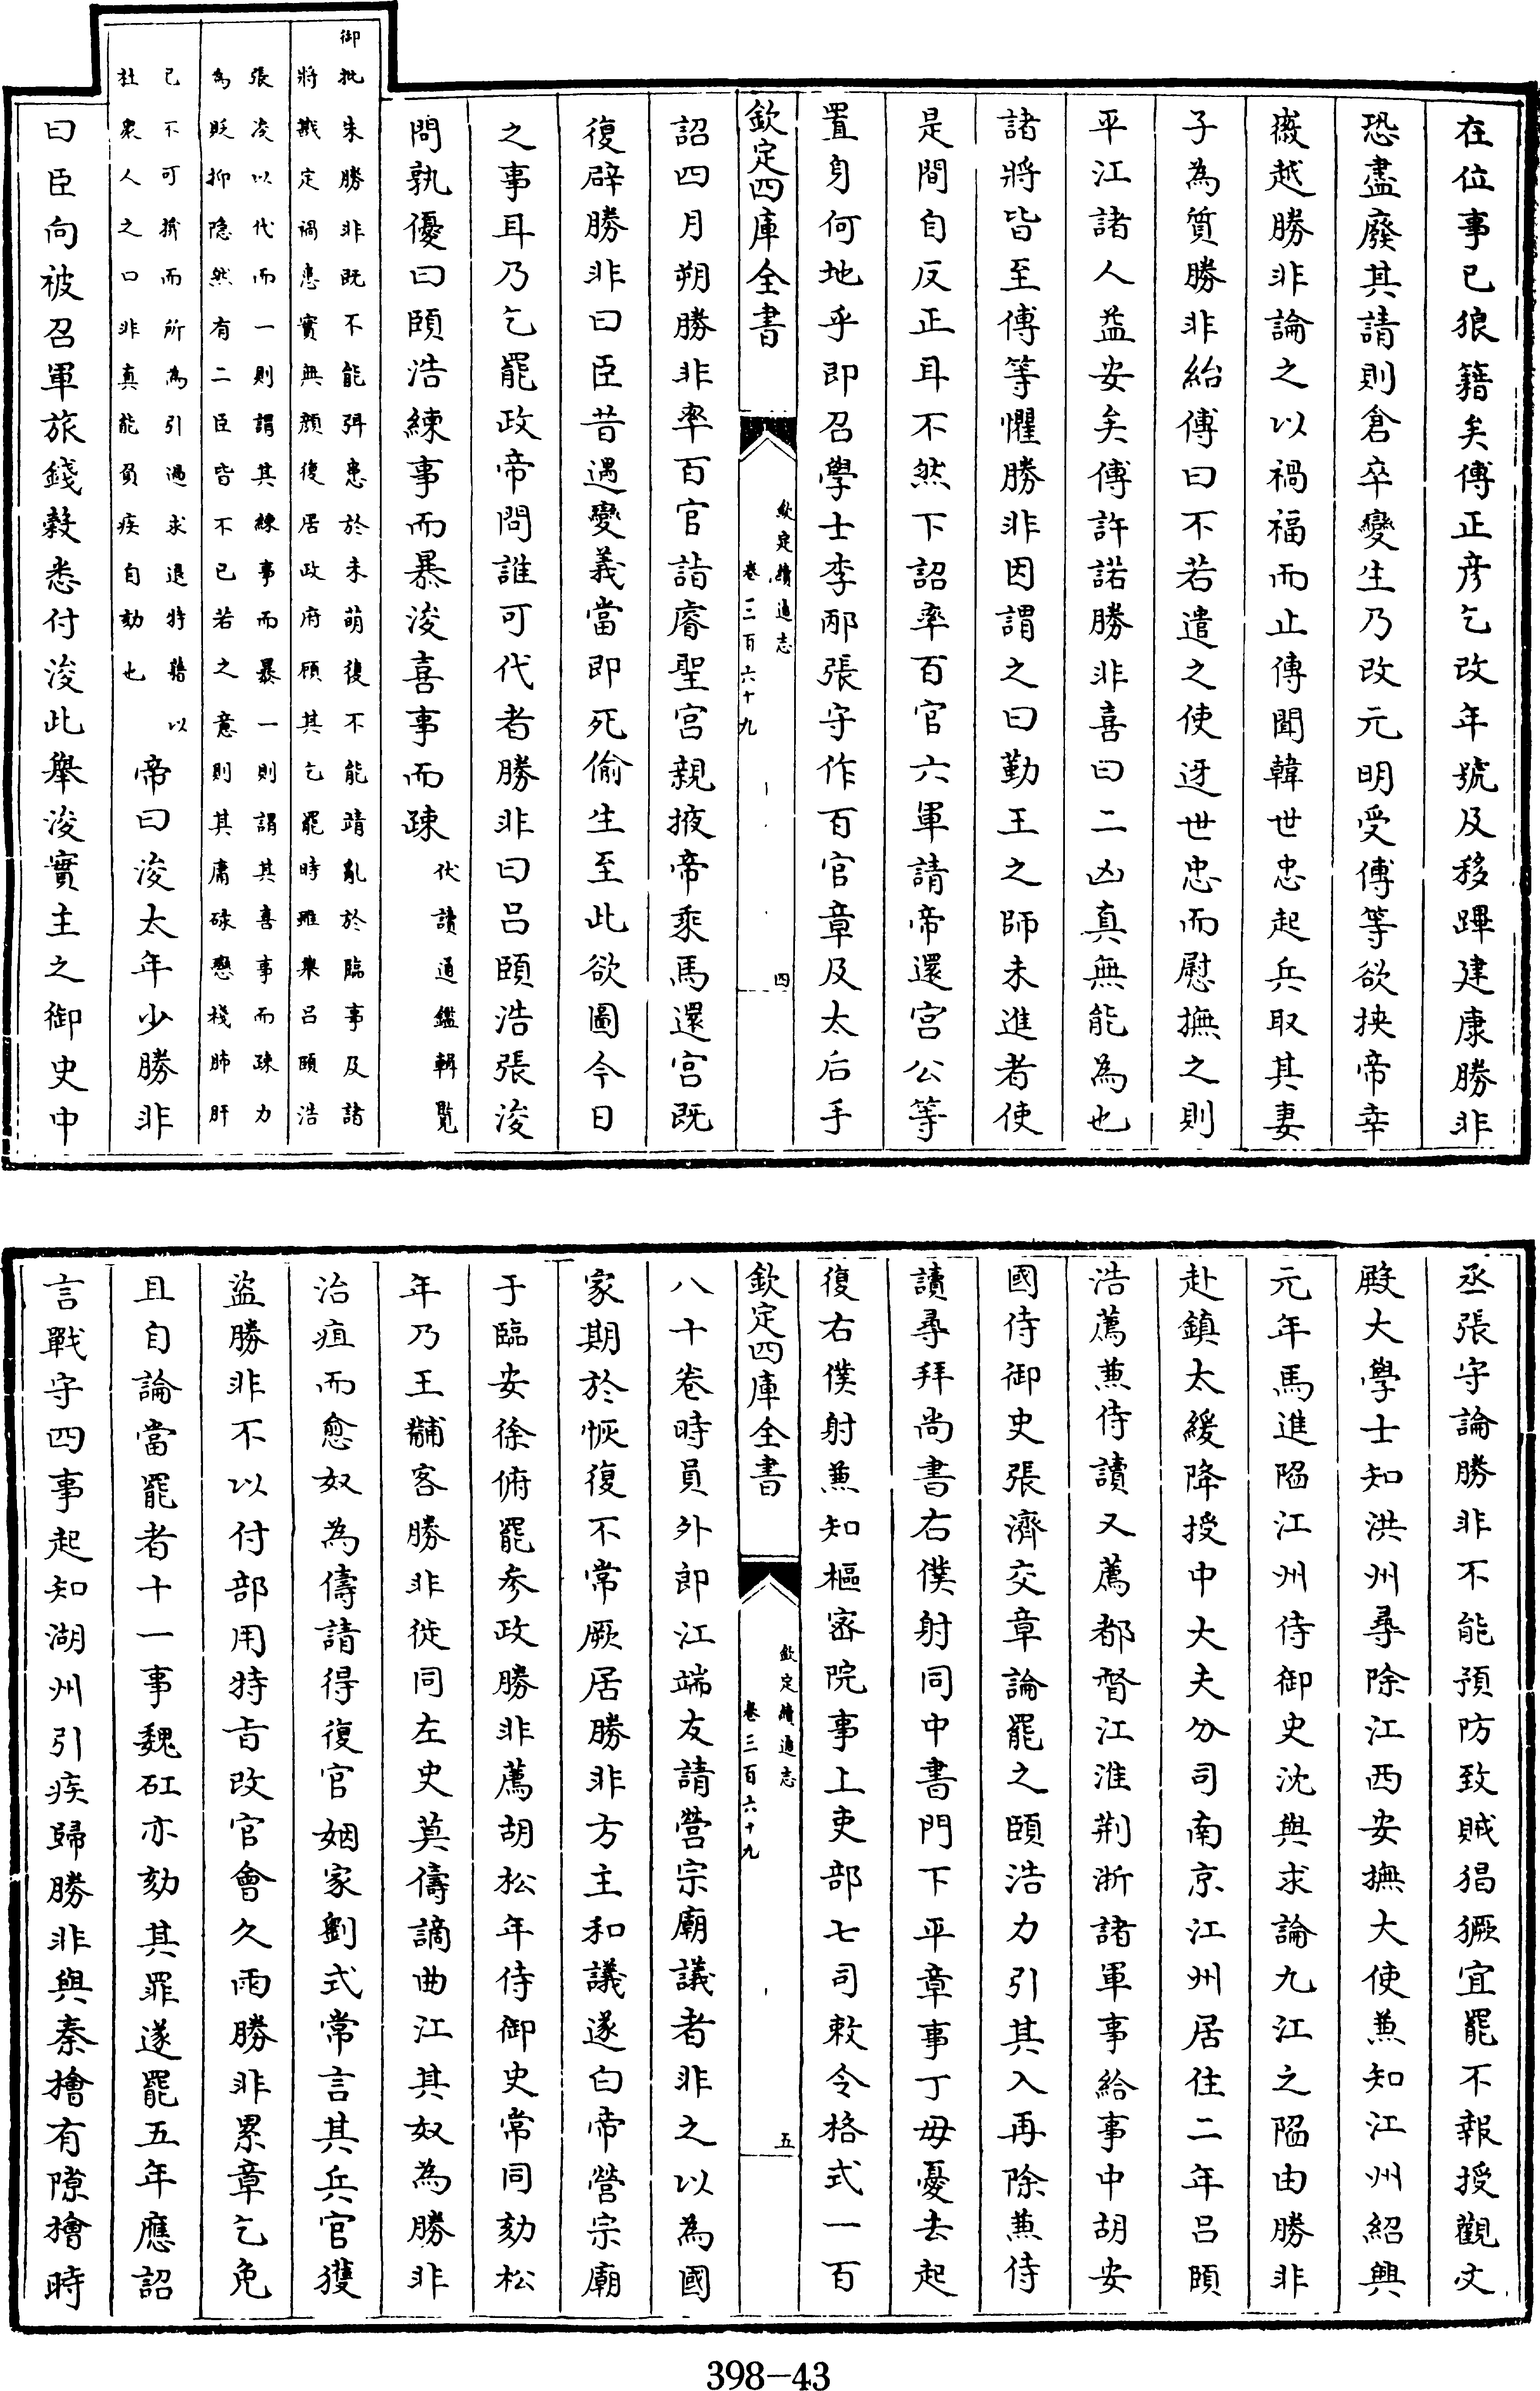 在位事已狼籍矣傅正彦乞改年號及移蹕建康勝非
恐盡廢其請則倉卒變生乃改元明受傅等欲挾帝幸
徽越勝非論之以禍福而止傅聞韓世忠起兵取其妻
子為質勝非紿傅曰不若遣之使迓世忠而慰撫之則
平江諸人益安矣傅許諾勝非喜曰二凶真無能為也
諸將皆至傅等懼勝非因謂之曰勤王之師未進者使
是間自反正耳不然下詔率百官六軍請帝還宫公等
置身何地乎即召學士李邴張守作百官章及太后手
欽定四庫全書
欽定續通志
卷三百六十九
四
詔四月朔勝非率百官詣睿聖宫親掖帝乘馬還宫既
復辟勝非曰臣昔遇變義當即死偷生至此欲圖今日
之事耳乃乞罷政帝問誰可代者勝非曰吕頤浩張浚
問孰優曰頤浩練事而暴浚喜事而疎
伏讀通鑑輯覧
御批朱勝非既不能弭患於未萌復不能靖亂於臨事及諸
將戡定禍患實無顔復居政府顧其乞罷時雖舉吕頤浩
張浚以代而一則謂其練事而暴一則謂其喜事而疎力
為貶抑隐然有二臣皆不已若之意則其庸碌戀棧肺肝
已不可揜而所為引過求退特藉以
杜衆人之口非真能負疾自劾也
帝曰浚太年少勝非
曰臣向被召軍旅錢穀悉付浚此舉浚實主之御史中
丞張守論勝非不能預防致賊猖獗宜罷不報授觀文
殿大學士知洪州尋除江西安撫大使兼知江州紹興
元年馬進陷江州侍御史沈與求論九江之陷由勝非
赴鎮太緩降授中大夫分司南京江州居住二年吕頤
浩薦兼侍讀又薦都督江淮荆浙諸軍事給事中胡安
國侍御史張濟交章論罷之頤浩力引其入再除兼侍
讀尋拜尚書右僕射同中書門下平章事丁母憂去起
復右僕射兼知樞密院事上吏部七司敕令格式一百
欽定四庫全書
欽定續通志
卷三百六十九
五
八十卷時員外郎江端友請營宗廟議者非之以為國
家期於恢復不常厥居勝非方主和議遂白帝營宗廟
于臨安徐俯罷參政勝非薦胡松年侍御史常同劾松
年乃王黼客勝非徙同左史莫儔謫曲江其奴為勝非
治疽而愈奴為儔請得復官姻家劉式常言其兵官獲
盜勝非不以付部用特旨改官會久雨勝非累章乞免
且自論當罷者十一事魏矼亦劾其罪遂罷五年應詔
言戰守四事起知湖州引疾歸勝非與秦檜有隙檜時
398-43